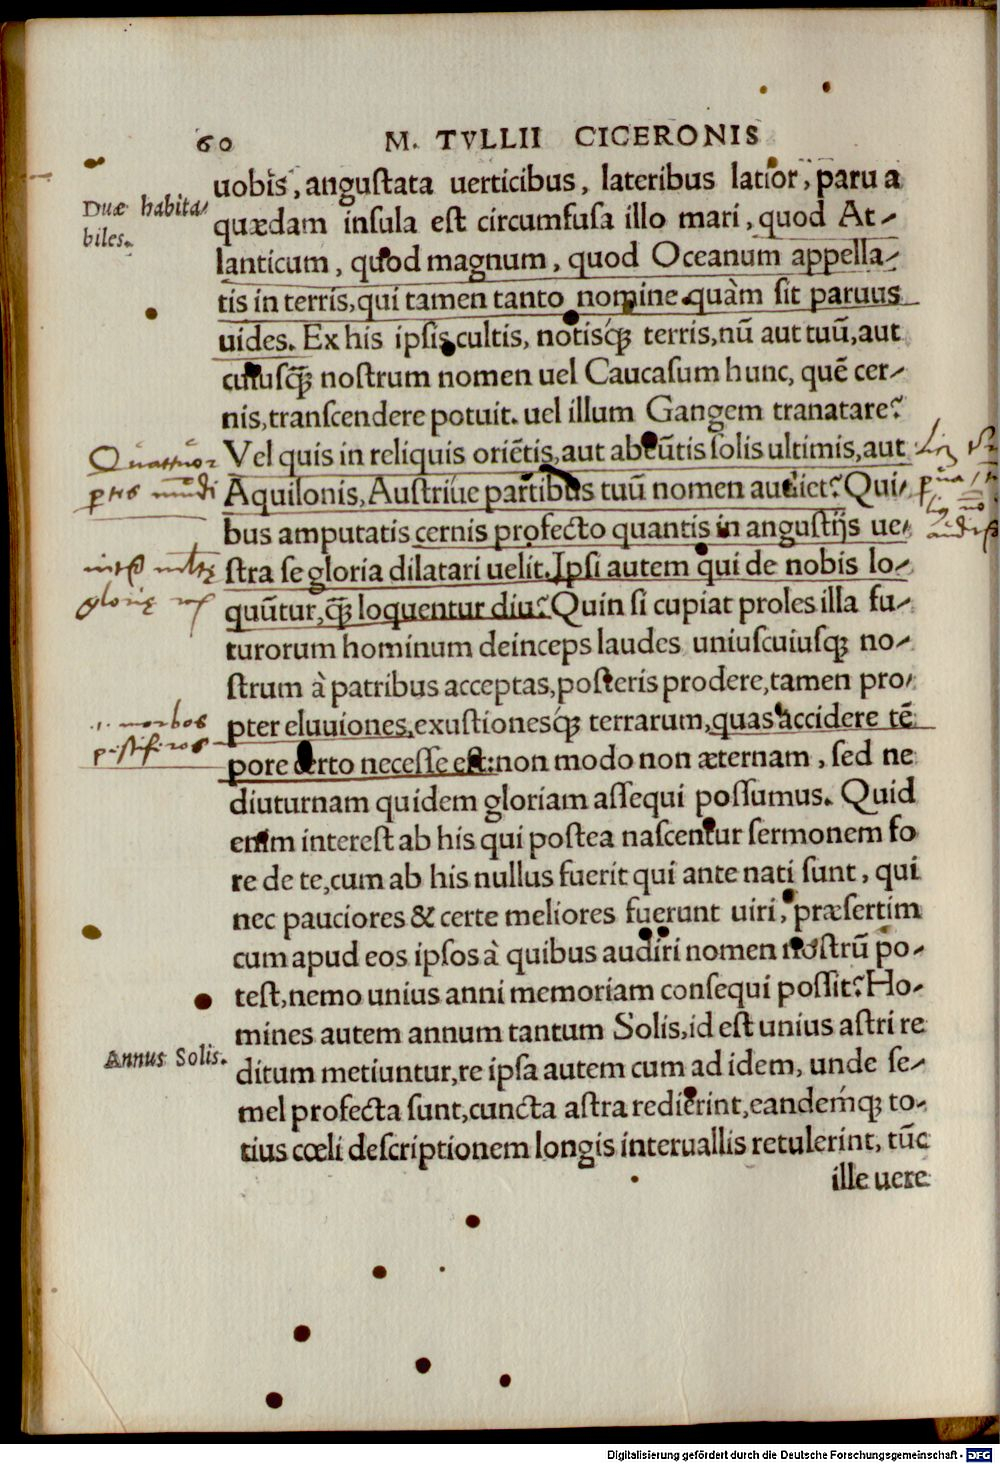 60 M. TVLLII CICERONIS
uobis, angustata uerticibus, lateribus latior, parua
Duæ habita/
biles.
quædam insula est circumfusa illo mari, quod At-
lanticum, quod magnum, quod Oceanum appella-
tis in terris, qui tamen tanto nomine quàm sit paruus
uides. Ex his ipsis cultis, notisq́ꝫ terris, nũ aut tuũ, aut
cuiusq̃ꝫ nostrum nomen uel Caucasum hunc, quẽ cer-
nis, transcendere potuit. uel illum Gangem tranatare?
Vel quis in reliquis oriẽtis, aut abeũtis solis ultimis, aut
Quattuor
ptes mũdi
Aquilonis, Austriue partibus tuũ nomen audiet? Qui-
bus amputatis cernis profecto quantis in angustijs ue-
stra se gloria dilatari uelit. Ipsi autem qui de nobis lo-
glorię
quũtur, q̃ꝫ loquentur diu? Quin si cupiat proles illa fu-
turorum hominum deinceps laudes uniuscuiusqꝫ no-
strum à patribus acceptas, posteris prodere, tamen pro-
.i. morbos
pestiferos
pter eluuiones, exustionesq́ꝫ terrarum, quas accidere tẽ
pore certo necesse est: non modo non æternam, sed ne
diuturnam quidem gloriam assequi possumus. Quid
enim interest ab his qui postea nascentur sermonem fo
re de te, cum ab his nullus fuerit qui ante nati sunt, qui
nec pauciores & certe meliores fuerunt uiri, præsertim
cum apud eos ipsos à quibus audiri nomen nostrũ po-
test, nemo unius anni memoriam consequi possit? Ho-
mines autem annum tantum Solis, id est unius astri re
Annus Solis.
ditum metiuntur, re ipsa autem cum ad idem, unde se-
mel profecta sunt, cuncta astra redierint, eandemq́ꝫ to-
tius cœli descriptionem longis interuallis retulerint, tũc
ille uere
Digitalisierung gefördert durch die Deutsche Forschungsgemeinschaft - DFG